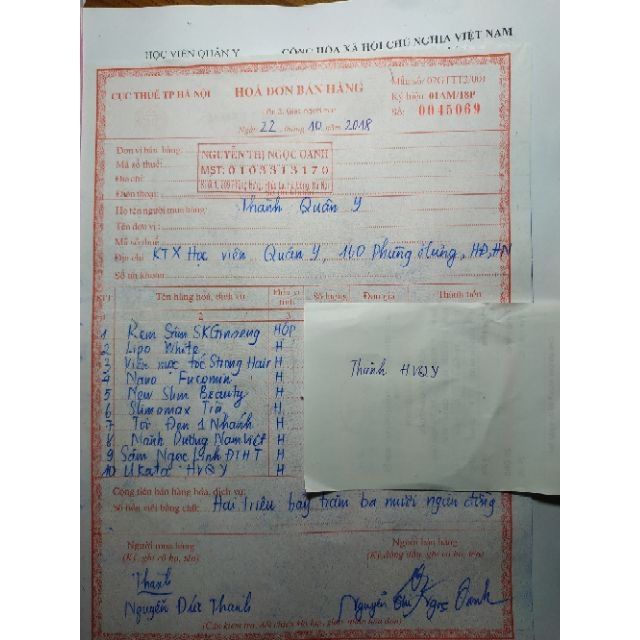 HỌC VIỆN QUÂN Y CỘNG HÒA XÃ HỘI CHỦ NGHĨA VIỆT NAM
CỤC THUẾ TP HÀ NỘI
HOÁ ĐƠN BÁN HÀNG
Mẫu số: 02GTTT3/001
Ký hiệu: 01AM/18P
Số: 0045069
Ngày 22 tháng 10 năm 2018
Đơn vị bán hàng:
NGUYỄN THỊ NGỌC OANH
Mã số thuế:
MST: 0103313170
Địa chỉ:
Điện thoại:
Họ tên người mua hàng: Thành Quân Y
Tên đơn vị:
Mã số thuế:
Địa chỉ KTX Học viện Quân Y, 160 Phùng Hưng, HĐ, HN
Số tài khoản
STT Tên hàng hoá, dịch vụ Đơn vị tính Số lượng Đơn giá Thành tiền
2 3
1 Kem Sâm SKGinseng HỘP
2 Lipo White H
3 Viên mọc tóc Strong Hair H
4 Nano Fucomin H
5 New Slim Beauty H
6 Slimomax Tím H
7 Tỏi Đen 1 Nhánh H
8 Mãnh Dương Nam Việt H
9 Sâm Ngọc Linh ĐTHT H
10 Ukata HVQY H
Thành HVQY
Cộng tiền bán hàng hóa, dịch vụ:
Số tiền viết bằng chữ: Hai triệu bảy trăm ba mươi ngàn đồng
Người mua hàng
(Ký, ghi rõ họ, tên)
Người bán hàng
(Ký, đóng dấu, ghi rõ họ, tên)
Thành
Nguyễn Đức Thành
Nguyễn Thị Ngọc Oanh